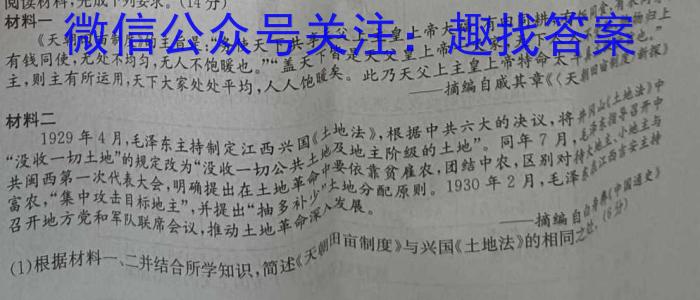 阅读材料,完成下列要求。(14分)
微信公众号关注:趣找答案
材料一
有钱同使,无处不均匀,无人不饱暖也。”“盖天下皆是天父上主皇上帝
主,则主有所运用,天下大家处处平均,人人饱暖矣。此乃天父上主皇上帝特命太平
——摘编自戚其章《〈天朝田亩制度〉新探》
材料二
1929年4月,毛泽东主持制定江西兴国《土地法》,根据中共六大的决议,将井冈山《土地法》中
“没收一切土地”的规定改为“没收一切公共土地及地主阶级的土地”。同年7月,毛泽东指导召开中
共闽西第一次代表大会,明确提出在土地革命中要依靠贫雇农,团结中农,区别对待大地主、小地主与
富农,“集中攻击目标地主”,并提出“抽多补少”土地分配原则。1930年2月,毛泽东在江西吉安主持
召开地方党和军队联席会议,推动土地革命深入发展。
——摘编自白寿彝《中国通史》
(1)根据材料一、二并结合所学知识,简述《天朝田亩制度》与兴国《土地法》的相同之处。(6分)